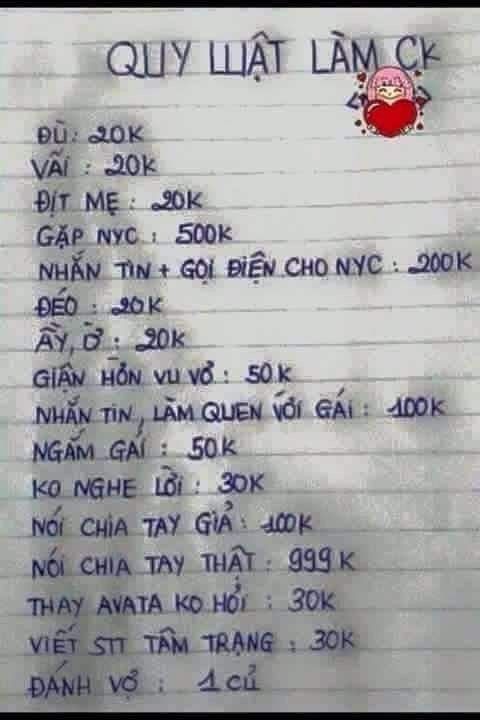 QUY LUẬT LÀM CK
ĐÙ: 20K
VÃI : 20K
ĐỊT MẸ : 20K
GẶP NYC : 500K
NHẮN TIN + GỌI ĐIỆN CHO NYC : 200K
ĐÉO : 20K
ẦY, Ờ : 20K
GIẬN HỜN VU VƠ : 50K
NHẮN TIN, LÀM QUEN VỚI GÁI : 100K
NGẮM GÁI : 50K
KO NGHE LỜI : 30K
NÓI CHIA TAY GIẢ : 100K
NÓI CHIA TAY THẬT : 999K
THAY AVATA KO HỎI : 30K
VIẾT STT TÂM TRẠNG : 30K
ĐÁNH VỢ : 1 CỦ